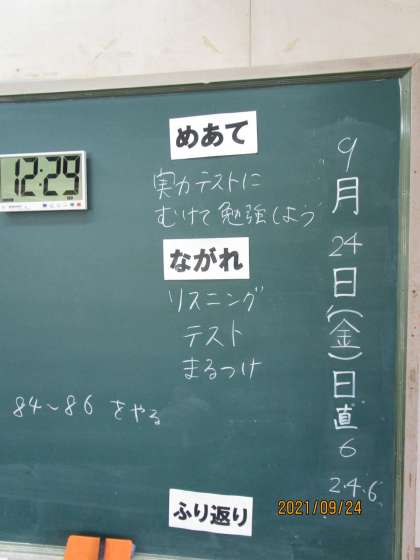 9月24日(金)日直6
2.4.6
めあて
実力テストに
むけて勉強しよう
ながれ
リスニング
テスト
まるつけ
84〜86をやる
ふり返り
12:29
2021/09/24